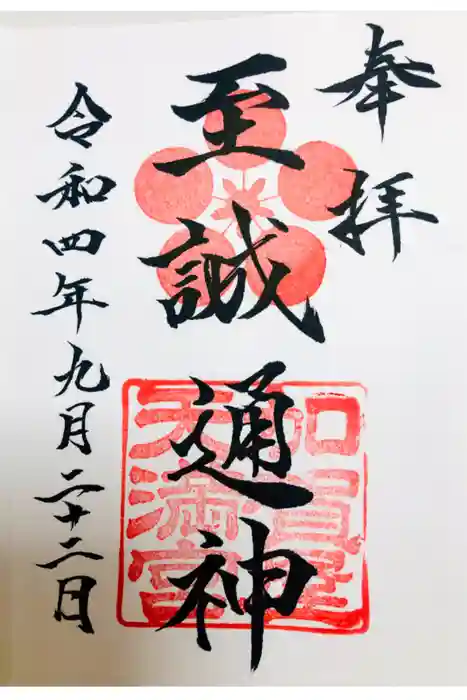 奉拝
至誠通神
令和四年九月二十二日
天満宮